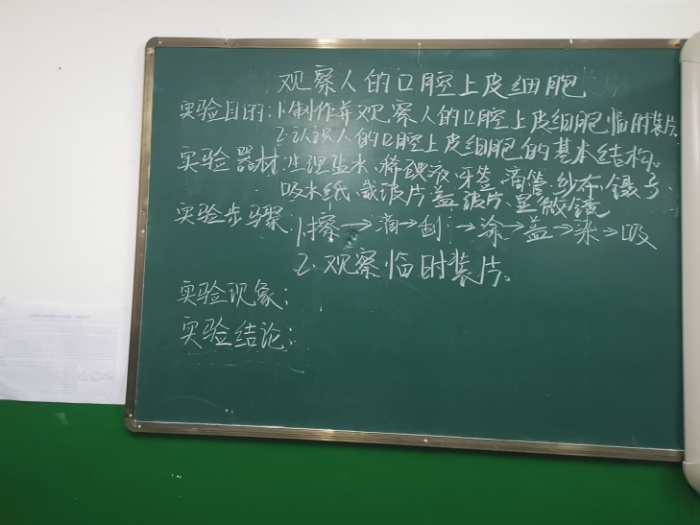 观察人的口腔上皮细胞
实验目的:1.制作并观察人的口腔上皮细胞临时装片。
2.认识人的口腔上皮细胞的基本结构。
实验器材:生理盐水、稀碘液、牙签、滴管、纱布、镊子、
吸水纸、载玻片、盖玻片、显微镜
实验步骤:1.擦→滴→刮→涂→盖→染→吸
2.观察临时装片。
实验现象:
实验结论: